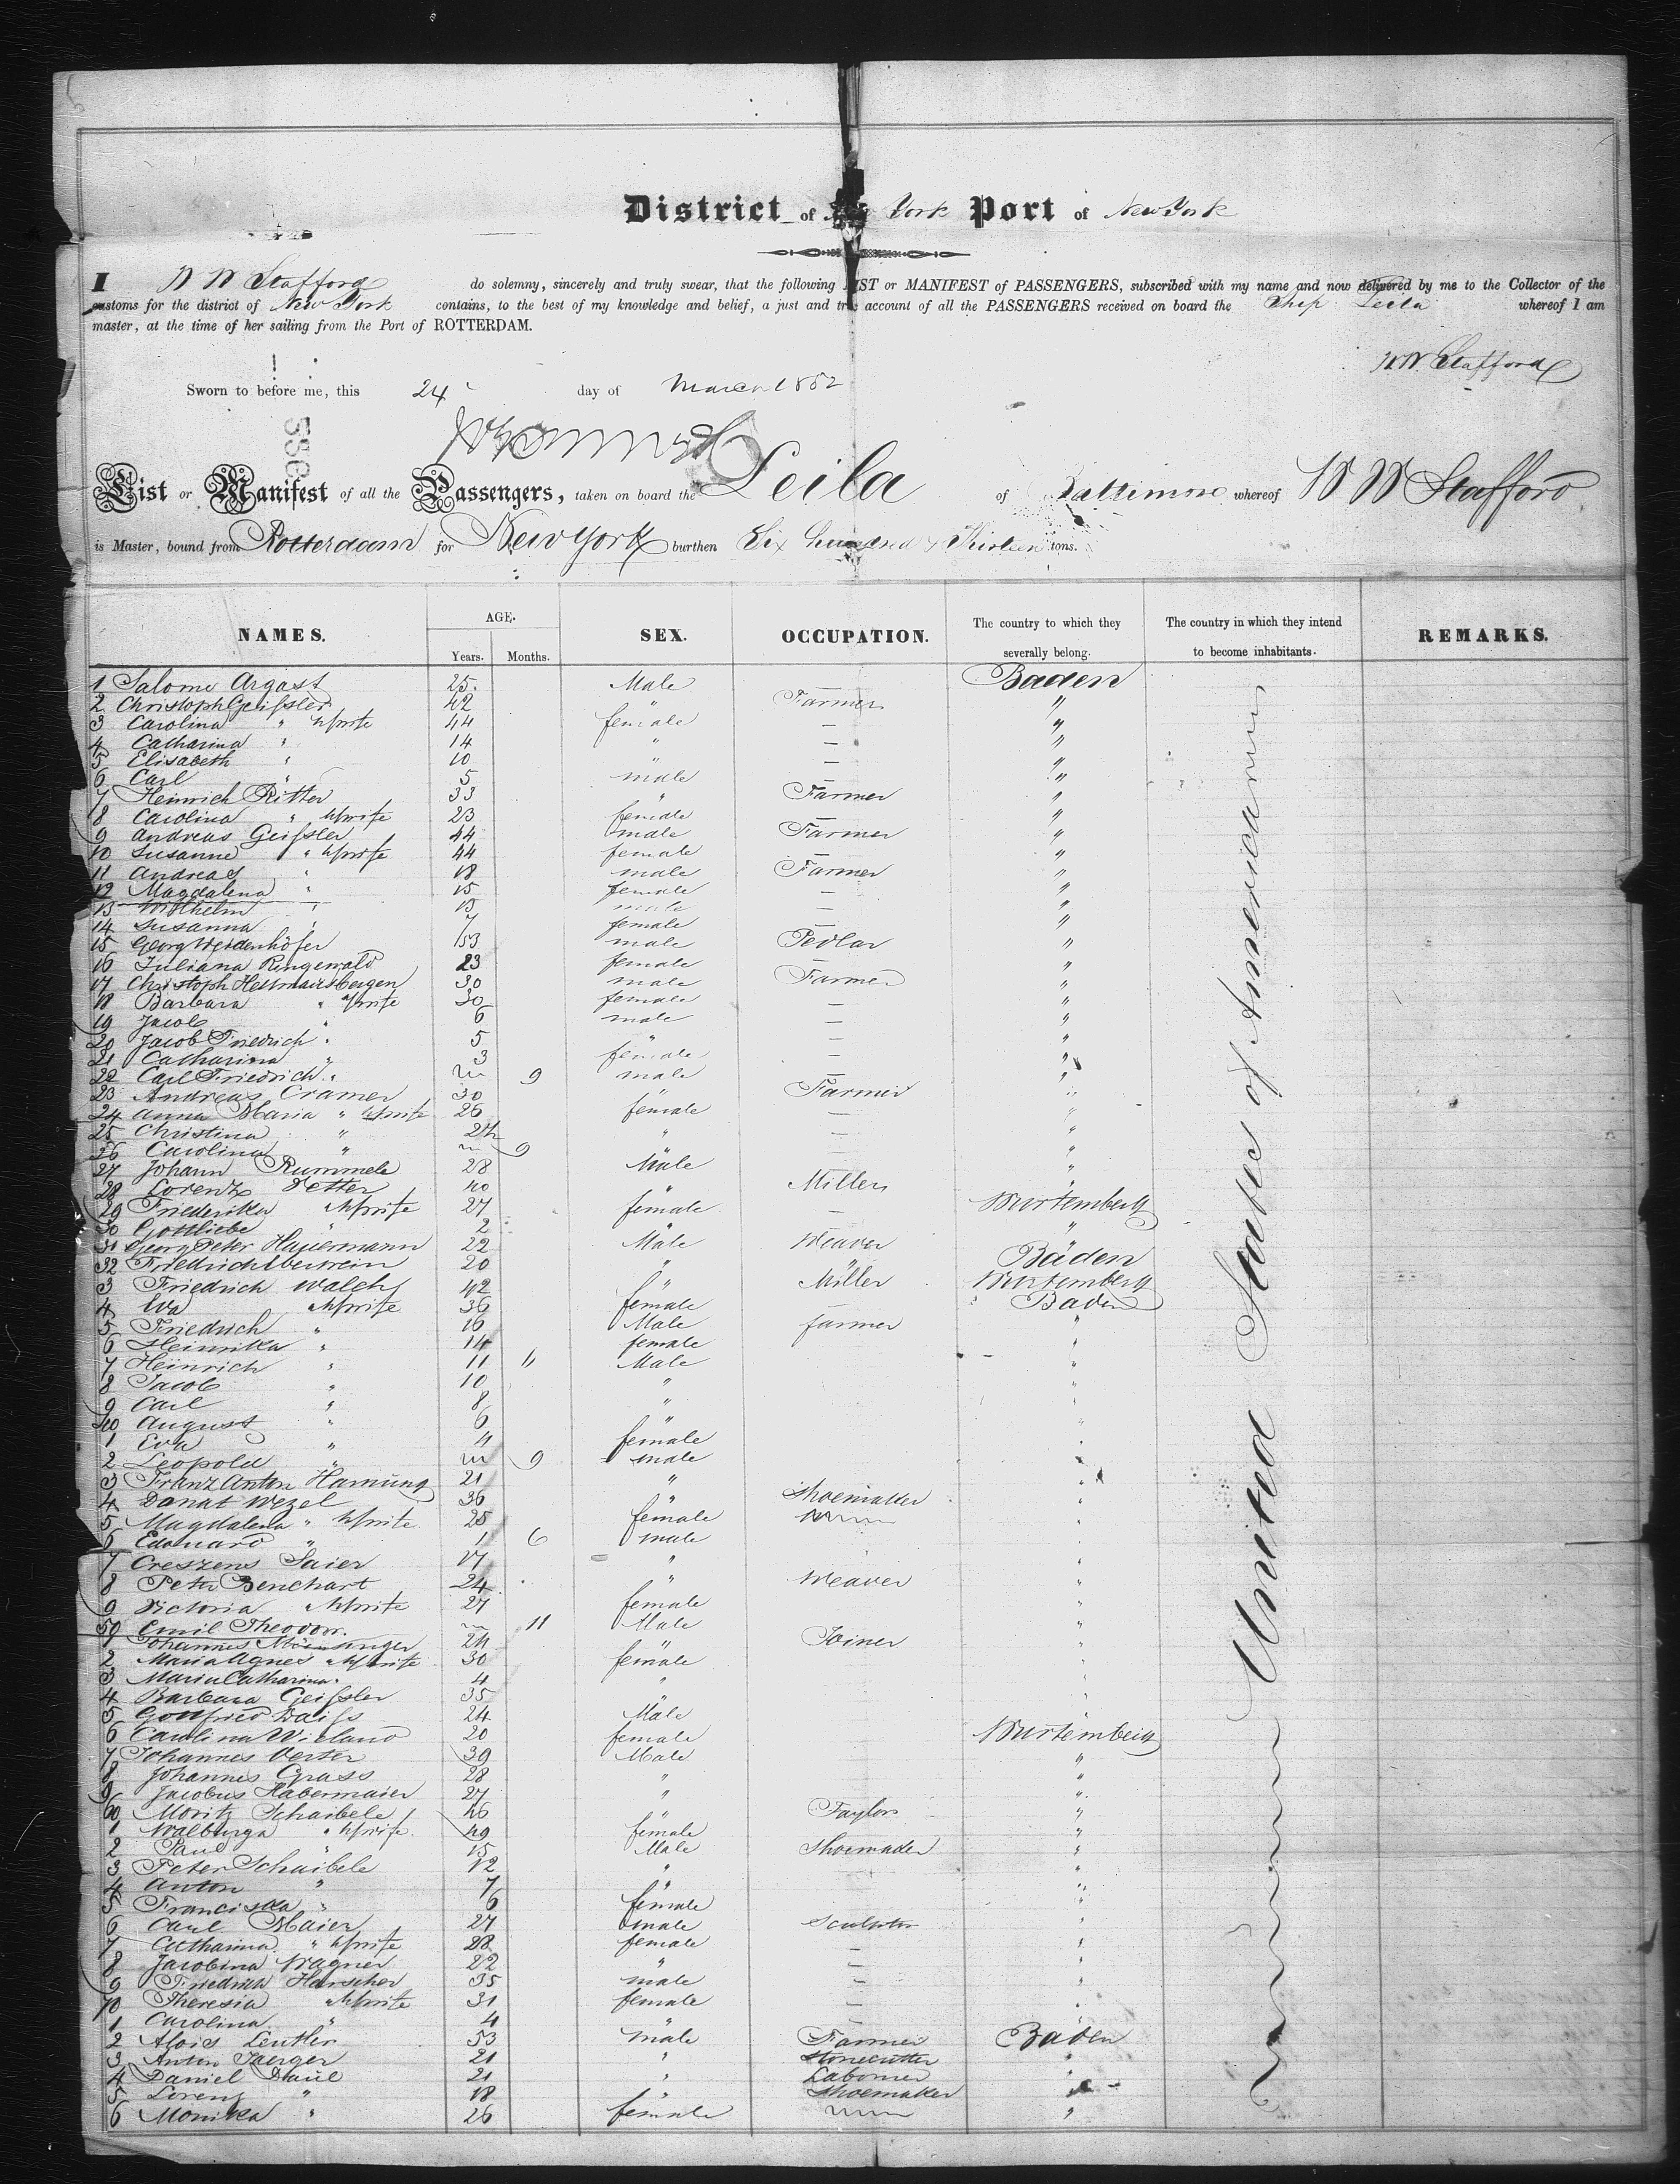 District of York Port of New York
I W W Stafford do solemny, sincerely and truly swear, that the following LIST or MANIFEST of PASSENGERS, subscribed with my name and now delivered by me to the Collector of the
customs for the district of New York contains, to the best of my knowledge and belief, a just and true account of all the PASSENGERS received on board the Ship Leila whereof I am
master, at the time of her sailing from the Port of ROTTERDAM.
W.W. Stafford
Sworn to before me, this 24 day of March 1852
List or Manifest of all the Passengers, taken on board the Leila of Baltimore whereof W W Stafford
is Master, bound from Rotterdam for New York burthen Six hundred & Thirteen tons.
NAMES. AGE. Years. Months. SEX. OCCUPATION. The country to which they severally belong. The country in which they intend to become inhabitants. REMARKS.
United States of America
1 Salome Argast 25. Male Baden
2 Christoph Geissler 42 " Farmer "
3 Carolina " wife 44 female — "
4 Catharina " 14 " — "
5 Elisabeth " 10 " — "
6 Carl " 5 male — "
7 Heinrich Ritter 33 " Farmer "
8 Carolina " wife 23 female "
9 Andreas Geissler 44 male Farmer "
10 Susanne " wife 44 female — "
11 Andreas " 18 male Farmer "
12 Magdalena " 15 female — "
13 Wilhelm " 13 male — "
14 Susanna " 7 female — "
15 Georg 53 male Pedlar "
16 Juliana Ringewald 23 female — "
17 Christoph 30 male Farmer "
18 Barbara " wife 30 female — "
19 Jacob " 6 male — "
20 Jacob Friedrich " 5 " — "
21 Catharina " 3 female — "
22 Carl Friedrich " 9 male — "
23 Andreas Cramer 30 Farmer "
24 Anna Maria " wife 26 female — "
25 Christina " " — "
26 Carolina " 9 "
27 Johann Rummele 28 Male "
28 Lorenz Vetter 40 " Miller "
29 Friederika wife 27 female — Wurtemberg
30 Gottliebe " 2 " "
31 Georg Peter Hauermann 22 Male Weaver Baden
32 Friedrich 20 " " Wurtemberg
3 Friedrich Walch 42 " Miller Baden
4 Eva wife 36 female
5 Friedrich " 16 Male farmer "
6 Heinrika " 14 female "
7 Heinrich " 11 " Male "
8 Jacob " 10 " "
9 Carl " 8 " "
40 August " 6 " "
1 Eva " 4 female "
2 Leopold " 9 male "
3 Franz Anton 21 " "
4 Donat Wezel 36 " Shoemaker "
5 Magdalena " wife 25 female "
6 Edouard " 1 6 male "
7 Creszens Saier 17 " "
8 Peter 24 " Weaver "
9 Victoria wife 27 female "
50 Emil Theodor. 11 Male "
1 Johannes 24 " Joiner "
2 Maria Agnes wife 30 female "
3 Maria Catharina 4 " "
4 Barbara Geissler 35 " "
5 Gottfried Weiss 24 Male "
6 Carolina Wieland 20 female Wurtemberg
7 Johannes 39 Male "
8 Johannes Grass 28 " "
9 Jacobus Habermaier 27 " "
60 Moritz Schaibele 46 " Taylor "
1 Walburga " wife 49 female "
2 Paul " 15 Male Shoemaker "
3 Peter Schaibele 12 " "
4 Anton " 7 " "
5 Franciska " 6 female "
6 Carl Maier 27 male Sculptor "
7 Catharina " wife 28 female — "
8 Jacobina Wagner 22 " — "
9 Friedrich Herscher 35 male — "
70 Theresia wife 31 female — "
1 Carolina " 4 " — "
2 Alois Leuthler 53 male Farmer Baden
3 Anton Jaerger 21 " Stonecutter "
4 Daniel Daul 21 " Laborer "
5 Lorenz " 18 " Shoemaker "
6 Monika " 26 female "